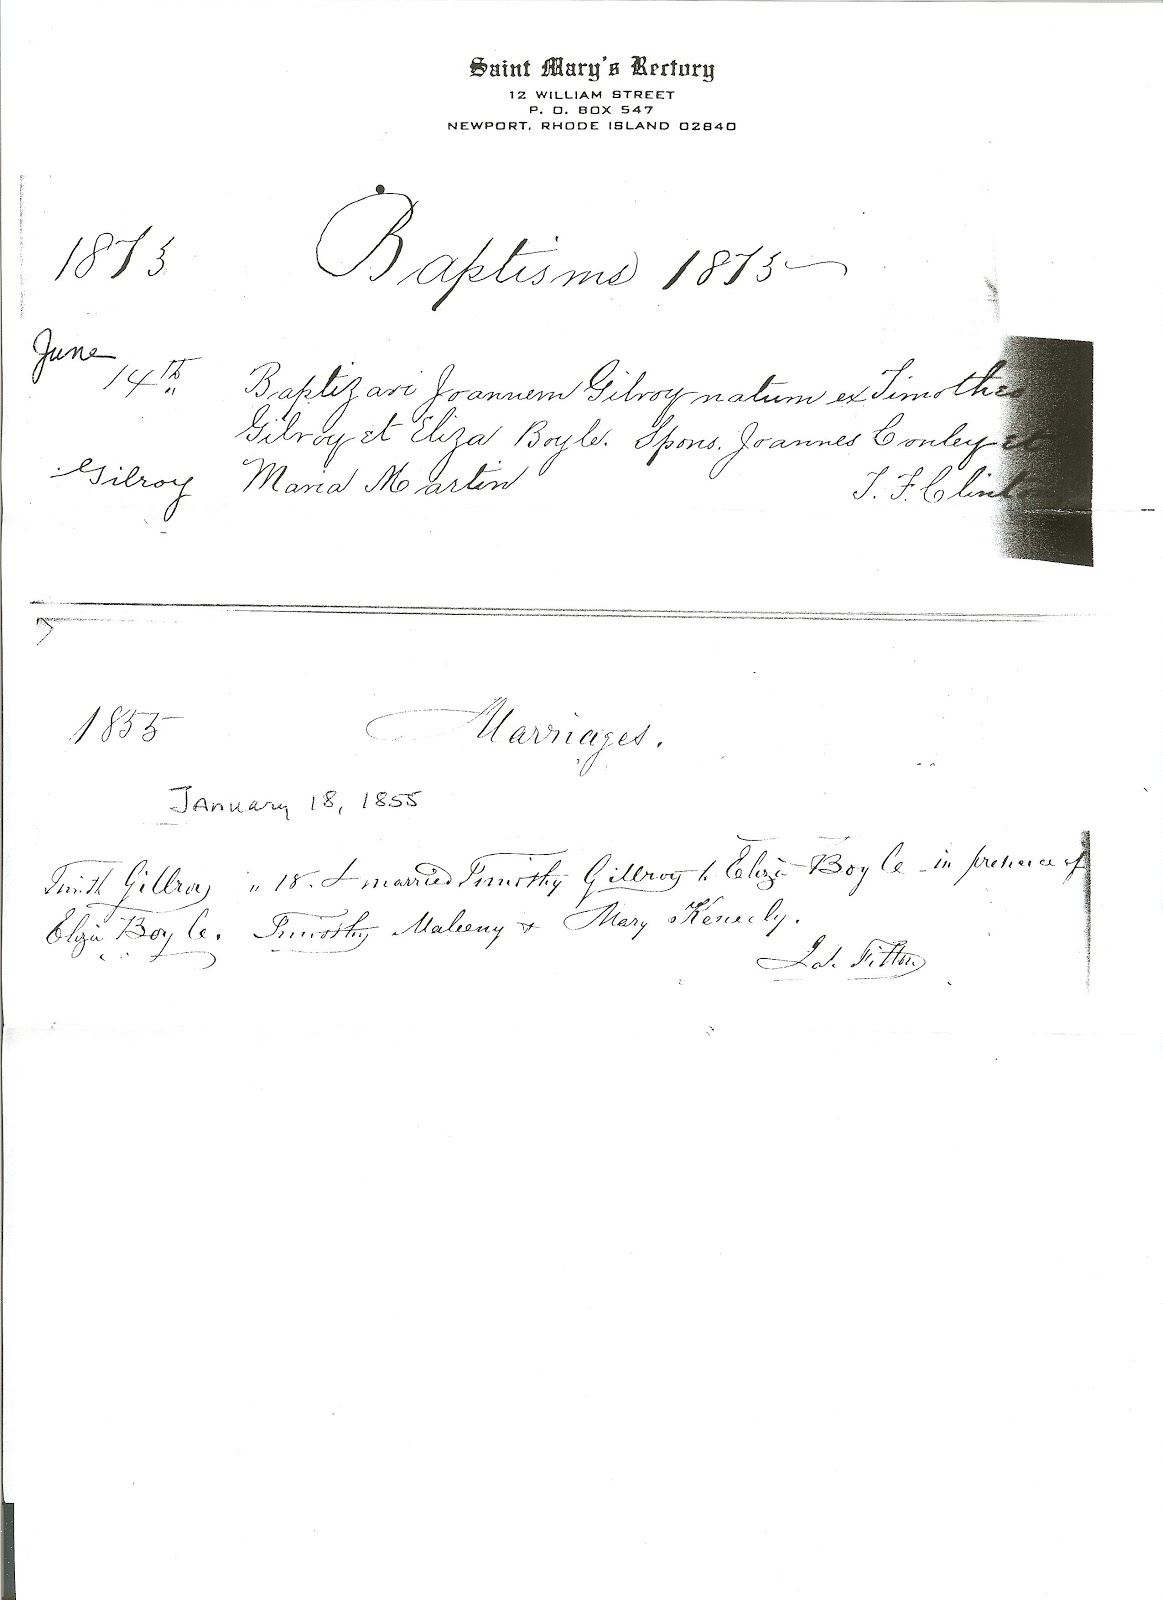 Saint Mary's Rectory
12 WILLIAM STREET
P. O. BOX 547
NEWPORT, RHODE ISLAND 02840
1873 Baptisms 1873
June
14th Baptizavi Joannem Gilroy natum ex Timotheo
Gilroy et Eliza Boyle. Spons. Joannes Conley et
Gilroy Maria Martin T. F. Clinton
1855 Marriages.
January 18, 1855
Gillroy " 18. I married Timothy Gillroy to Eliza Boyle in presence of
Eliza Boyle. Timothy & Mary